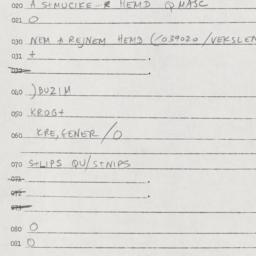 020 A STMUCIKE-R HEMD QMASC
021 O
030 NEM A REJNEM HEMD (/039020/VEKSLEN
031 +
032
040 )BUZIM
050 KROG+
060 KRE,GENER/O
070 S+LIPS QU/S+NIPS
071
072
073
080 O
081 O